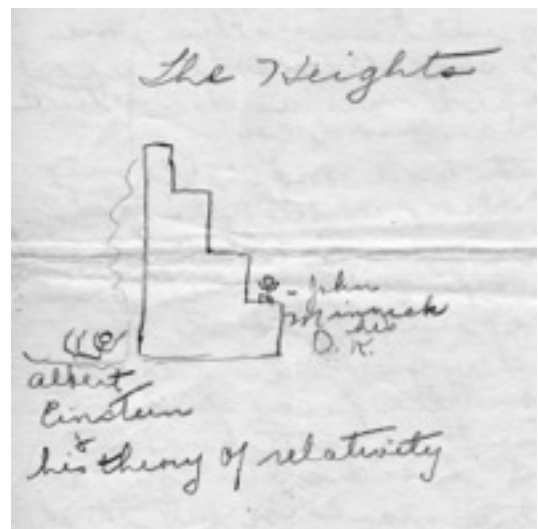 The Heights
- John
Minnick
his
O. K.
Albert
Einstein
&
his theory of relativity